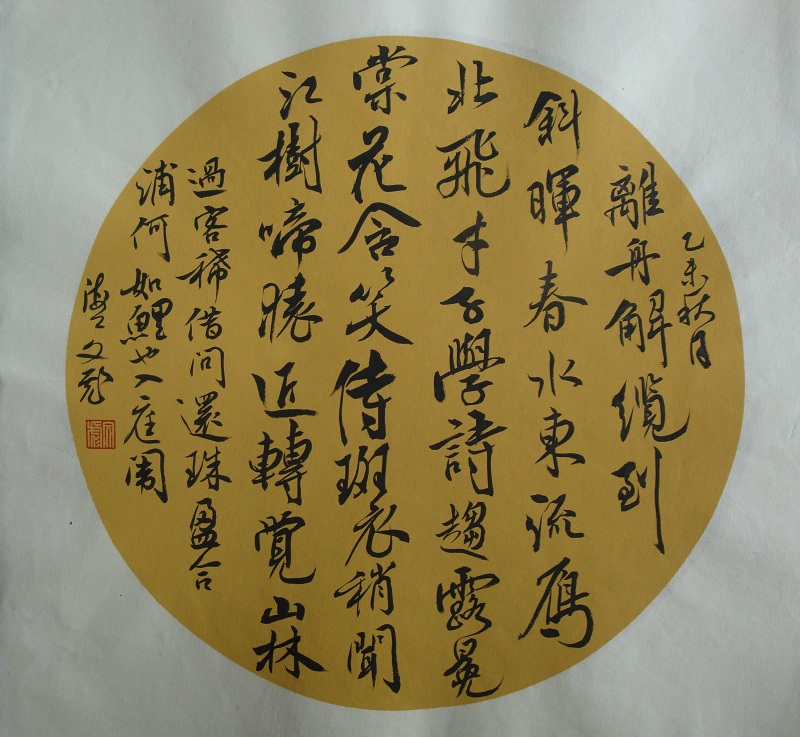 乙未秋月
離舟解纜到
斜暉春水東流雁
北飛才子學詩趨露冕
棠花含笑侍斑衣稍聞
江樹啼猿近轉覺山林
過客稀借問還珠盈合
浦何
如鯉也入庭闈
文彪